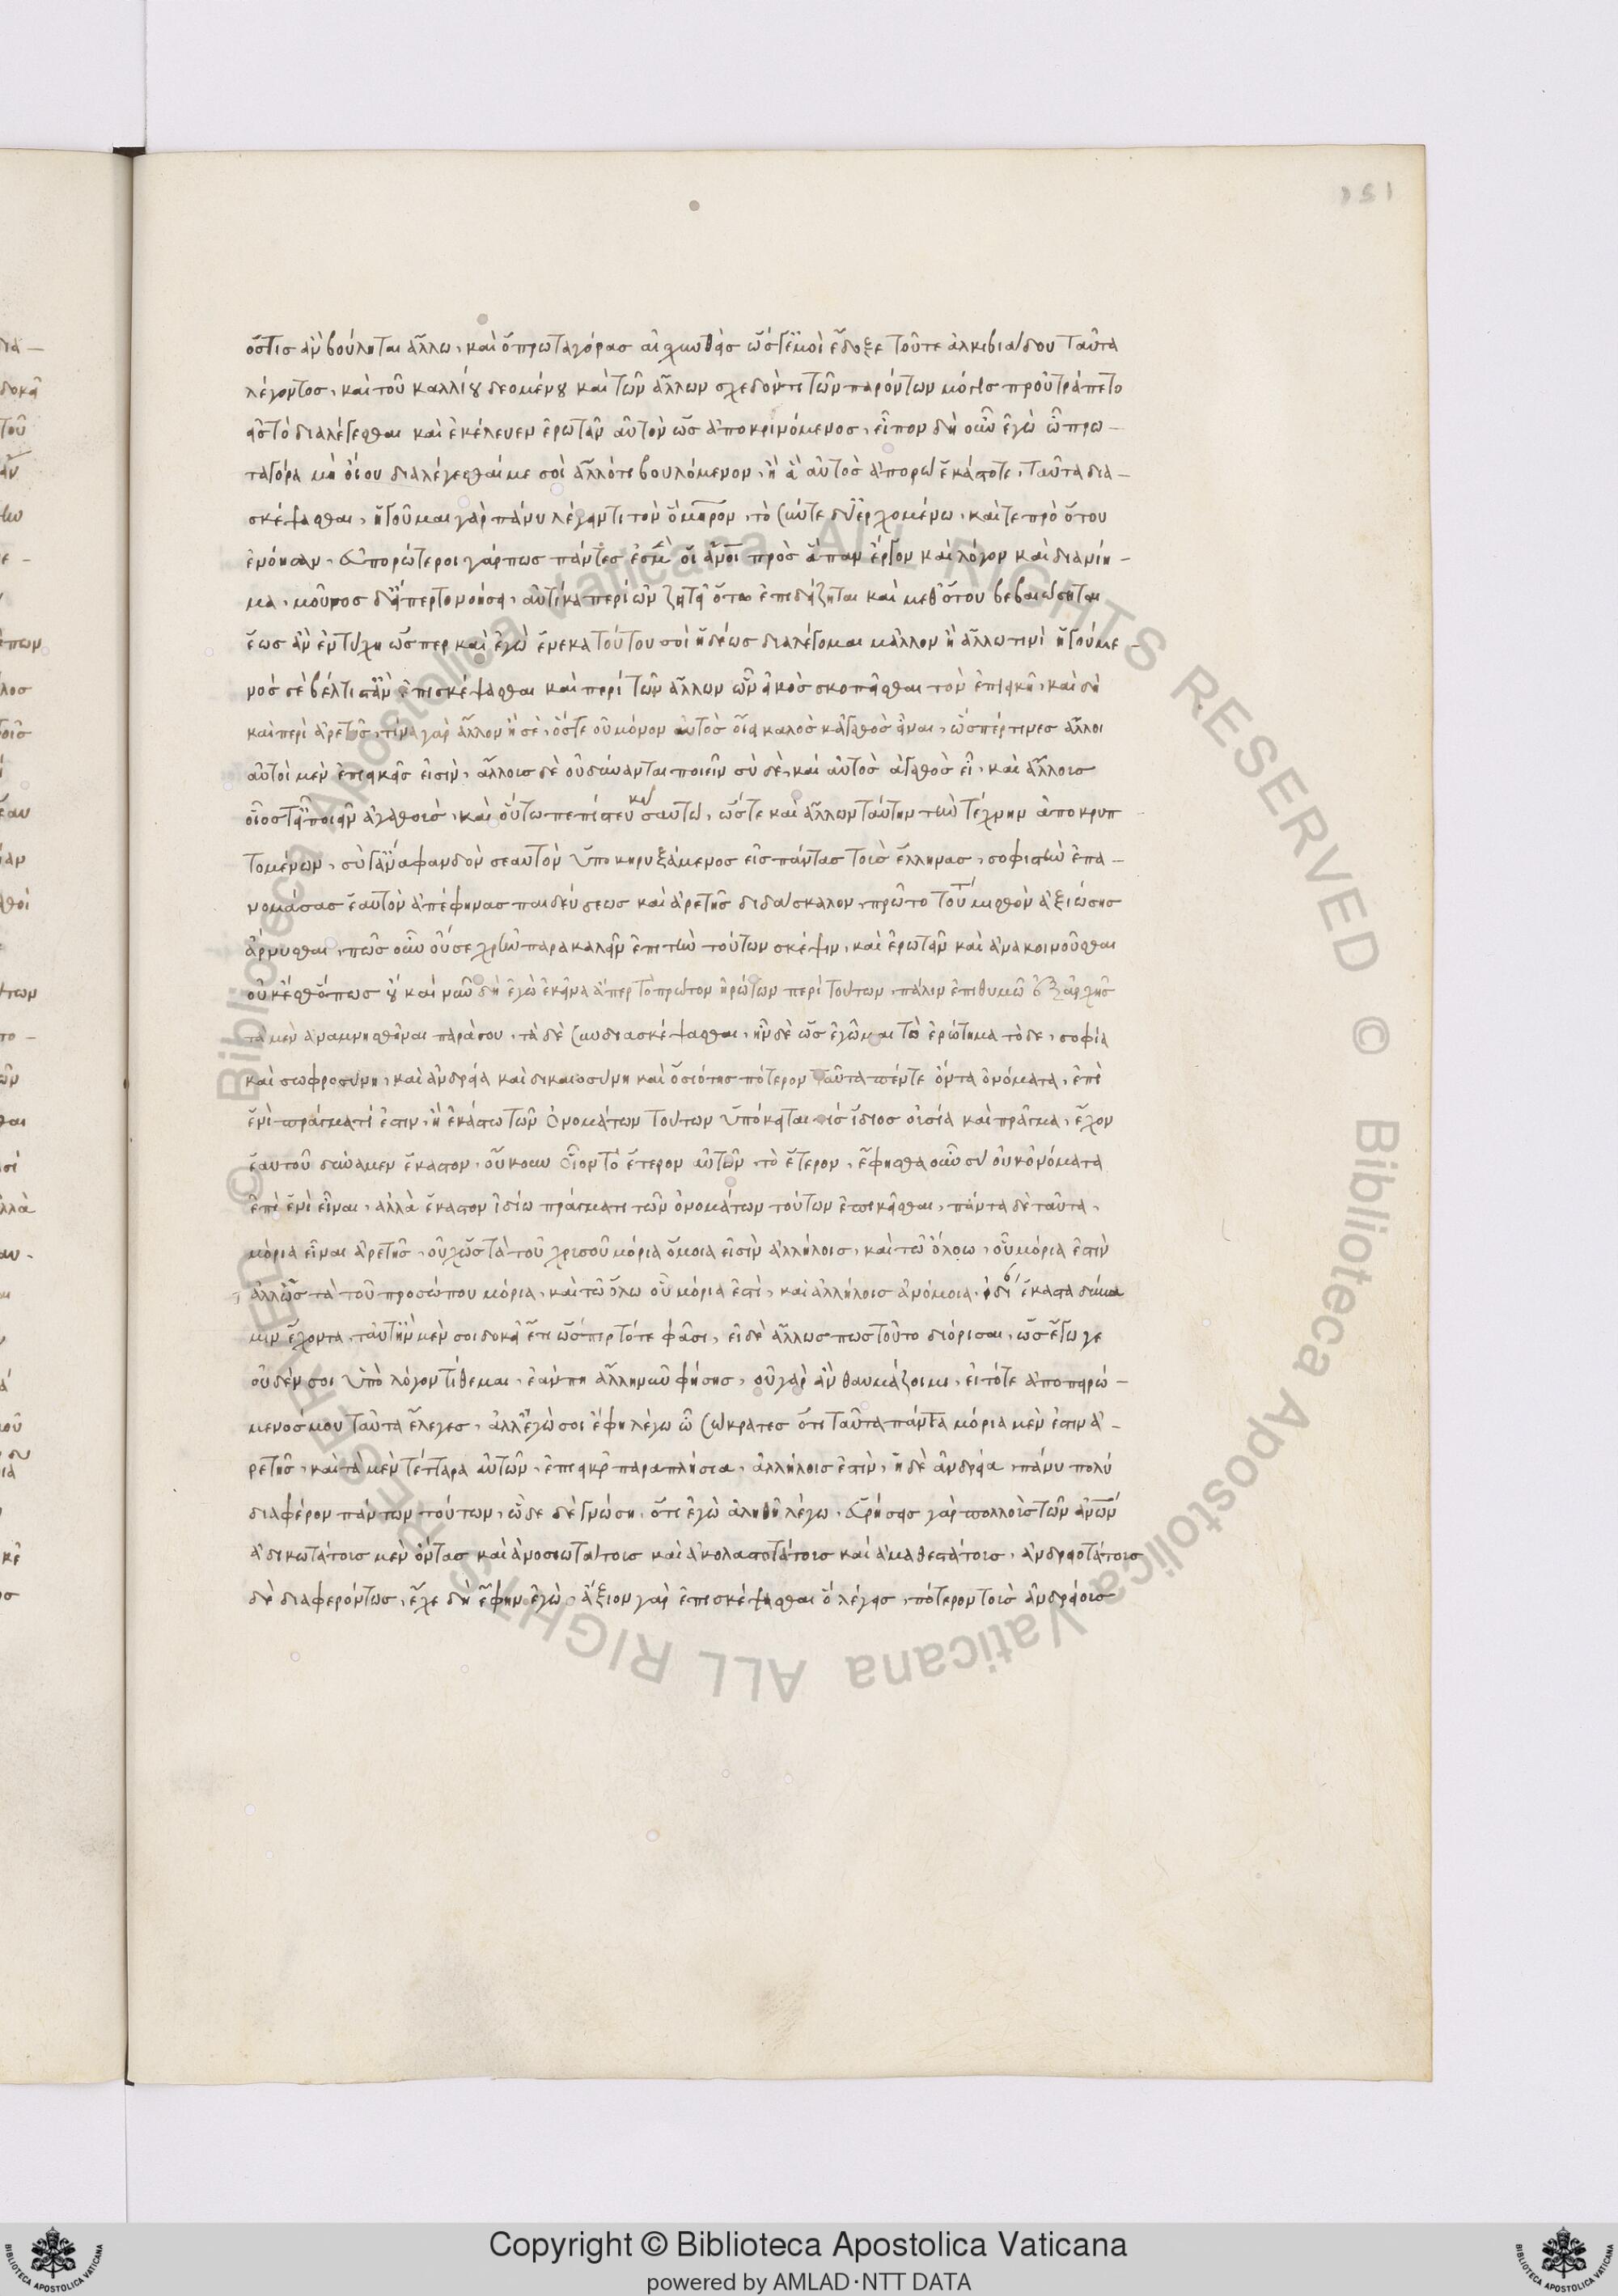 151
ὅστις ἂν βούληται ἄλλω, καὶ ὁ πρωταγόρας αἰσχυνθεὶς ὥς γ' ἐμοὶ ἔδοξε τοῦτε ἀλκιβιάδου ταῦτα
λέγοντος, καὶ τοῦ καλλίου δεομένου καὶ τῶν ἄλλων σχεδόν τι τῶν παρόντων μόγις προὐτράπετο
εἰς τὸ διαλέγεσθαι καὶ ἐκέλευεν ἐρωτᾶν αὐτὸν ὡς ἀποκρινόμενος, εἶπον δὴ οὖν ἐγὼ ὦ πρω-
ταγόρα μὴ οἴου διαλέγεσθαί με σοὶ ἄλλό τι βουλόμενον, ἢ ἃ αὐτὸς ἀπορῶ ἑκάστοτε, ταῦτα δια-
σκέψασθαι, ἡγοῦμαι γὰρ πάνυ λέγειν τι τὸν ὅμηρον, τὸ σύν τε δύ' ἐρχομένω, καί τε πρὸ ὅτου
ἐνόησεν, εὐπορώτεροι γάρ πως πάντες ἐσμὲν οἱ ἄνοι πρὸς ἅπαν ἔργον καὶ λόγον καὶ διανόη-
μα, μοῦνος δ' εἴπερ τε νοήσῃ, αὐτίκα περιὼν ζητεῖ ὅτω ἐπιδείζηται καὶ μεθ' ὅτου βεβαιώσηται
ἕως ἂν ἐντύχη ὥσπερ καὶ ἐγὼ ἕνεκα τούτου σοὶ ἡδέως διαλέγομαι μᾶλλον ἢ ἄλλω τινὶ ἡγούμε-
νός σὲ βέλτιστ' ἂν ἐπισκέψασθαι καὶ περὶ τῶν ἄλλων ὧν εἰκὸς σκοπεῖσθαι τὸν ἐπιεικῆ, καὶ δὴ
καὶ περὶ ἀρετῆς, τίνα γὰρ ἄλλον ἢ σὲ, ὅστε οὐ μόνον αὐτὸς οἴει καλὸς κἀγαθὸς εἶναι, ὥσπέρ τινες ἄλλοι
αὐτοὶ μὲν ἐπιεικεῖς εἰσὶν, ἄλλοις δὲ οὐ δύνανται ποιεῖν σὺ δὲ, καὶ αὐτὸς ἀγαθὸς εἶ, καὶ ἄλλους
οἷός τ' εἶ ποιεῖν ἀγαθοὺς, καὶ οὕτω πεπίστευκας σαυτῶ, ὥστε καὶ ἄλλων ταύτην τὴν τέχνην ἀποκρυπ
τομένων, σύ γ' ἀναφανδὸν σεαυτὸν ὑποκηρυξάμενος εἰς πάντας τοὺς ἕλληνας, σοφιστὴν ἐπο-
νομάσας ἑαυτὸν ἀπέφηνας παιδεύσεως καὶ ἀρετῆς διδάσκαλον, πρῶτο τούτου μισθὸν ἀξιώσης
ἄρνυσθαι, πῶς οὖν οὔ σε χρῆν παρακαλεῖν ἐπὶ τὴν τούτων σκέψιν, καὶ ἐρωτᾶν καὶ ἀνακοινοῦσθαι
οὐκ ἔσθ' ὅπως οὐ καὶ νῦν δὴ ἐγὼ ἐκεῖνα ἅπερ τὸ πρῶτον ἠρώτων περὶ τούτων, πάλιν ἐπιθυμῶ ἐξ ἀρχῆς
τὰ μὲν ἀναμνησθῆναι παρά σου, τὰ δὲ συνδιασκέψασθαι, ἦν δὲ ὡς ἐγῶμαι τὸ ἐρώτημα τό δε, σοφία
καὶ σωφροσύνη, καὶ ἀνδρεία καὶ δικαιοσύνη καὶ ὁσιότης πότερον ταῦτα πέντε ὄντα ὀνόματα, ἐπὶ
ἑνὶ πράγματί ἐστιν, ἢ ἑκάστω τῶν ὀνομάτων τούτων ὑπόκειταί τις ἴδιος οὐσία καὶ πρᾶγμα, ἔχον
ἑαυτοῦ δύναμιν ἕκαστον, οὐκ ὂν οἷον τὸ ἕτερον αὐτῶν, τὸ ἕτερον, ἔφησθα οὖν σὺ οὐκ ὀνόματα
ἐπὶ ἑνὶ εἶναι, ἀλλὰ ἕκαστον ἰδίω πράγματι τῶν ὀνομάτων τούτων ἐπικεῖσθαι, πάντα δὲ ταῦτα,
μόρια εἶναι ἀρετῆς, οὐχ ὡς τὰ τοῦ χρυσοῦ μόρια ὅμοια εἰσὶν ἀλλήλοις, καὶ τῶ ὅλω, οὗ μόρια ἐστὶν
ἀλλ' ὡς τὰ τοῦ προσώπου μόρια, καὶ τῶ ὅλω οὗ μόρια ἐστὶ, καὶ ἀλλήλοις ἀνόμοια, ἰδίαν ἕκαστα δύνα
μιν ἔχοντα, ταῦτ' εἰ μέν σοι δοκεῖ ἔτι ὥσπερ τότε φάσι, εἰ δὲ ἄλλως πως τοῦτο διόρισαι, ὡς ἔγωγε
οὐδέν σοι ὑπὸ λόγον τίθεμαι, ἐάν πη ἄλλη νῦν φήσης, οὐ γὰρ ἂν θαυμάζοιμι, εἰ τότε ἀποπειρώ-
μενός μου ταῦτα ἔλεγες, ἀλλ' ἐγώ σοι ἔφη λέγω ὦ σώκρατες ὅτι ταῦτα πάντα μόρια μέν ἐστιν ἀ-
ρετῆς, καὶ τὰ μὲν τέτταρα αὐτῶν, ἐπιεικῶς παραπλήσια, ἀλλήλοις ἐστὶν, ἡ δὲ ἀνδρεία, πάνυ πολὺ
διαφέρον πάντων τούτων, ὧδε δὲ γνώση, ὅτι ἐγὼ ἀληθῆ λέγω, εὑρήσεις γὰρ πολλοὺς τῶν ἀνων
ἀδικωτάτους μὲν ὄντας καὶ ἀνοσιωτάτους καὶ ἀκολαστοτάτους καὶ ἀμαθεστάτους, ἀνδρειοτάτους
δὲ διαφερόντως, ἔχε δὴ ἔφην ἐγὼ, ἄξιον γὰρ ἐπισκέψασθαι ὃ λέγεις, πότερον τοὺς ἀνδρείους
© Biblioteca Apostolica Vaticana ALL RIGHTS RESERVED © Biblioteca Apostolica Vaticana ALL RIGHTS RESERVED
Copyright © Biblioteca Apostolica Vaticana
powered by AMLAD·NTT DATA